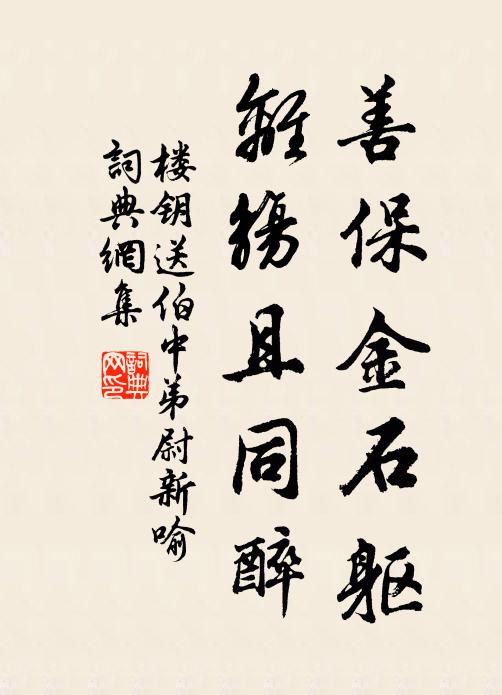 善保金石躯
離觴且同醉
楼钥送伯中弟尉新喻
詞典網集
詞典网印